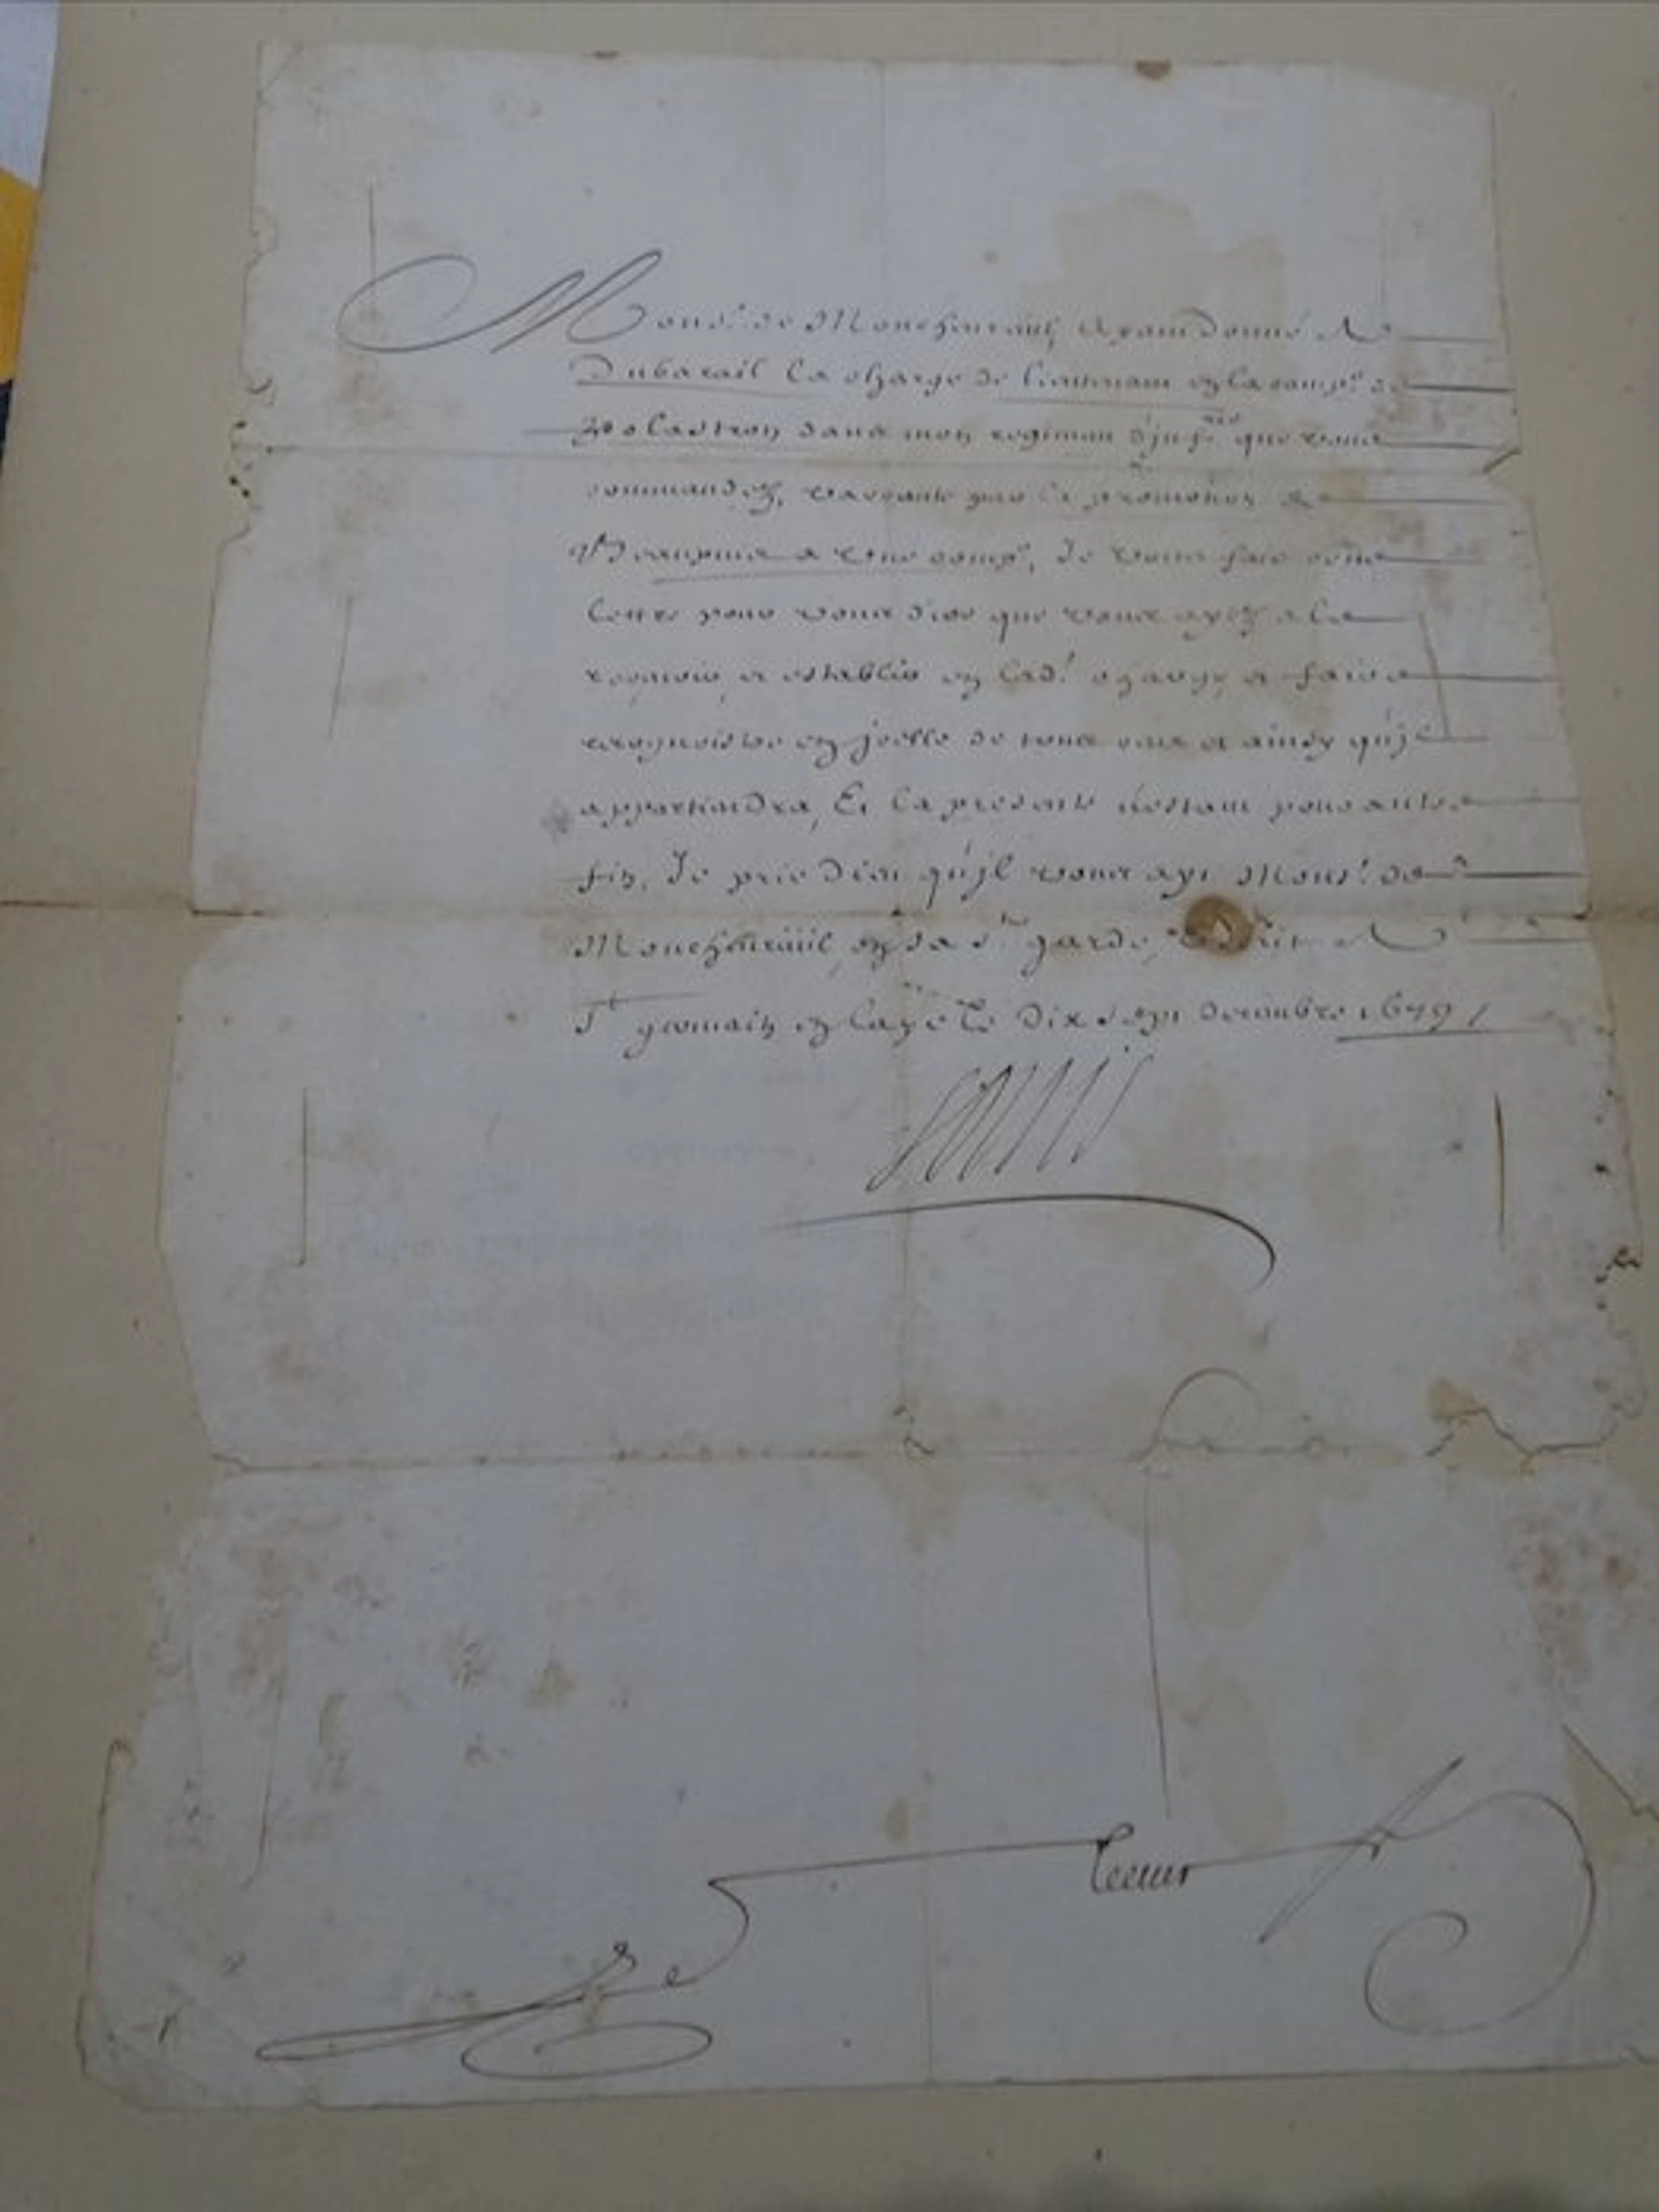 Mons.r de Moncheureuil, Ayant donné A
Dubarail la charge de lieutenant en la comp.e de
dans mon regiment d'inf.rie que vous
commandez, vaccante par la promotion de
a une comp.e, Je vous fais cette
lettre pour vous dire que vous ayez a le
recevoir, et establir en lad.e charge, et faire
recognoistre en jcelle de tous ceux et ainsy qu'jl
appartiendra, Et la presente n'estant pour autre
fin, Je prie Dieu qu'jl vous ayt Mons.r de
Moncheureuil, en sa s.te garde, Escrit A
S.t germain en laye le dix sept decembre 1679 /
Louis